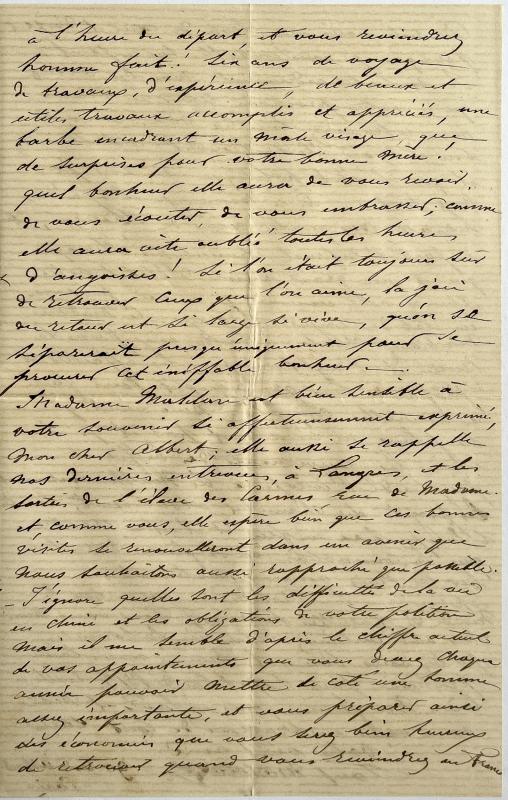 à l'heure du départ, et vous reviendrez
homme fait! Six ans de voyage
de travaux, d'expérience, de beaux et
utiles travaux accomplis et appréciés, une
barbe encadrant un mâle visage, que
de surprises pour votre bonne mère!
quel bonheur elle aura de vous revoir,
de vous écouter, de vous embrasser; comme
elle aura vite oublié toutes les heures
d'angoisses! Si l'on était toujours sûr
de retrouver ceux que l'on aime, la joie
du retour est si vive, qu'on se
séparerait presqu'uniquement pour se
procurer cet ineffable bonheur.—
Madame est bien sensible à
votre souvenir si affectueusement exprimé,
mon cher Albert; elle aussi se rappelle
nos dernières entrevues, à Langres, et les
sorties de l'élève des Carmes de Madame.
et comme vous, elle espère bien que ces bonnes
visites se renouvelleront dans un avenir que
nous souhaitons aussi rapproché que possible.
— J'ignore quelles sont les difficultés de la vie
en Chine et les obligations de votre position
mais il me semble d'après le chiffre actuel
de vos appointements que vous devez chaque
année pouvoir mettre de coté une somme
assez importante, et vous préparer ainsi
des économies que vous serez bien heureux
de retrouver quand vous reviendrez en France